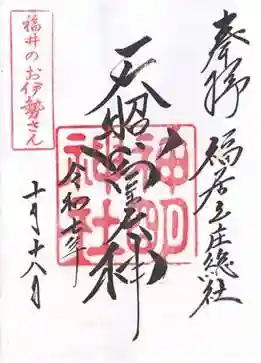 奉拝　福居庄総社
福井のお伊勢さん
天照皇大神
神明
神社
令和七年
十月十八日